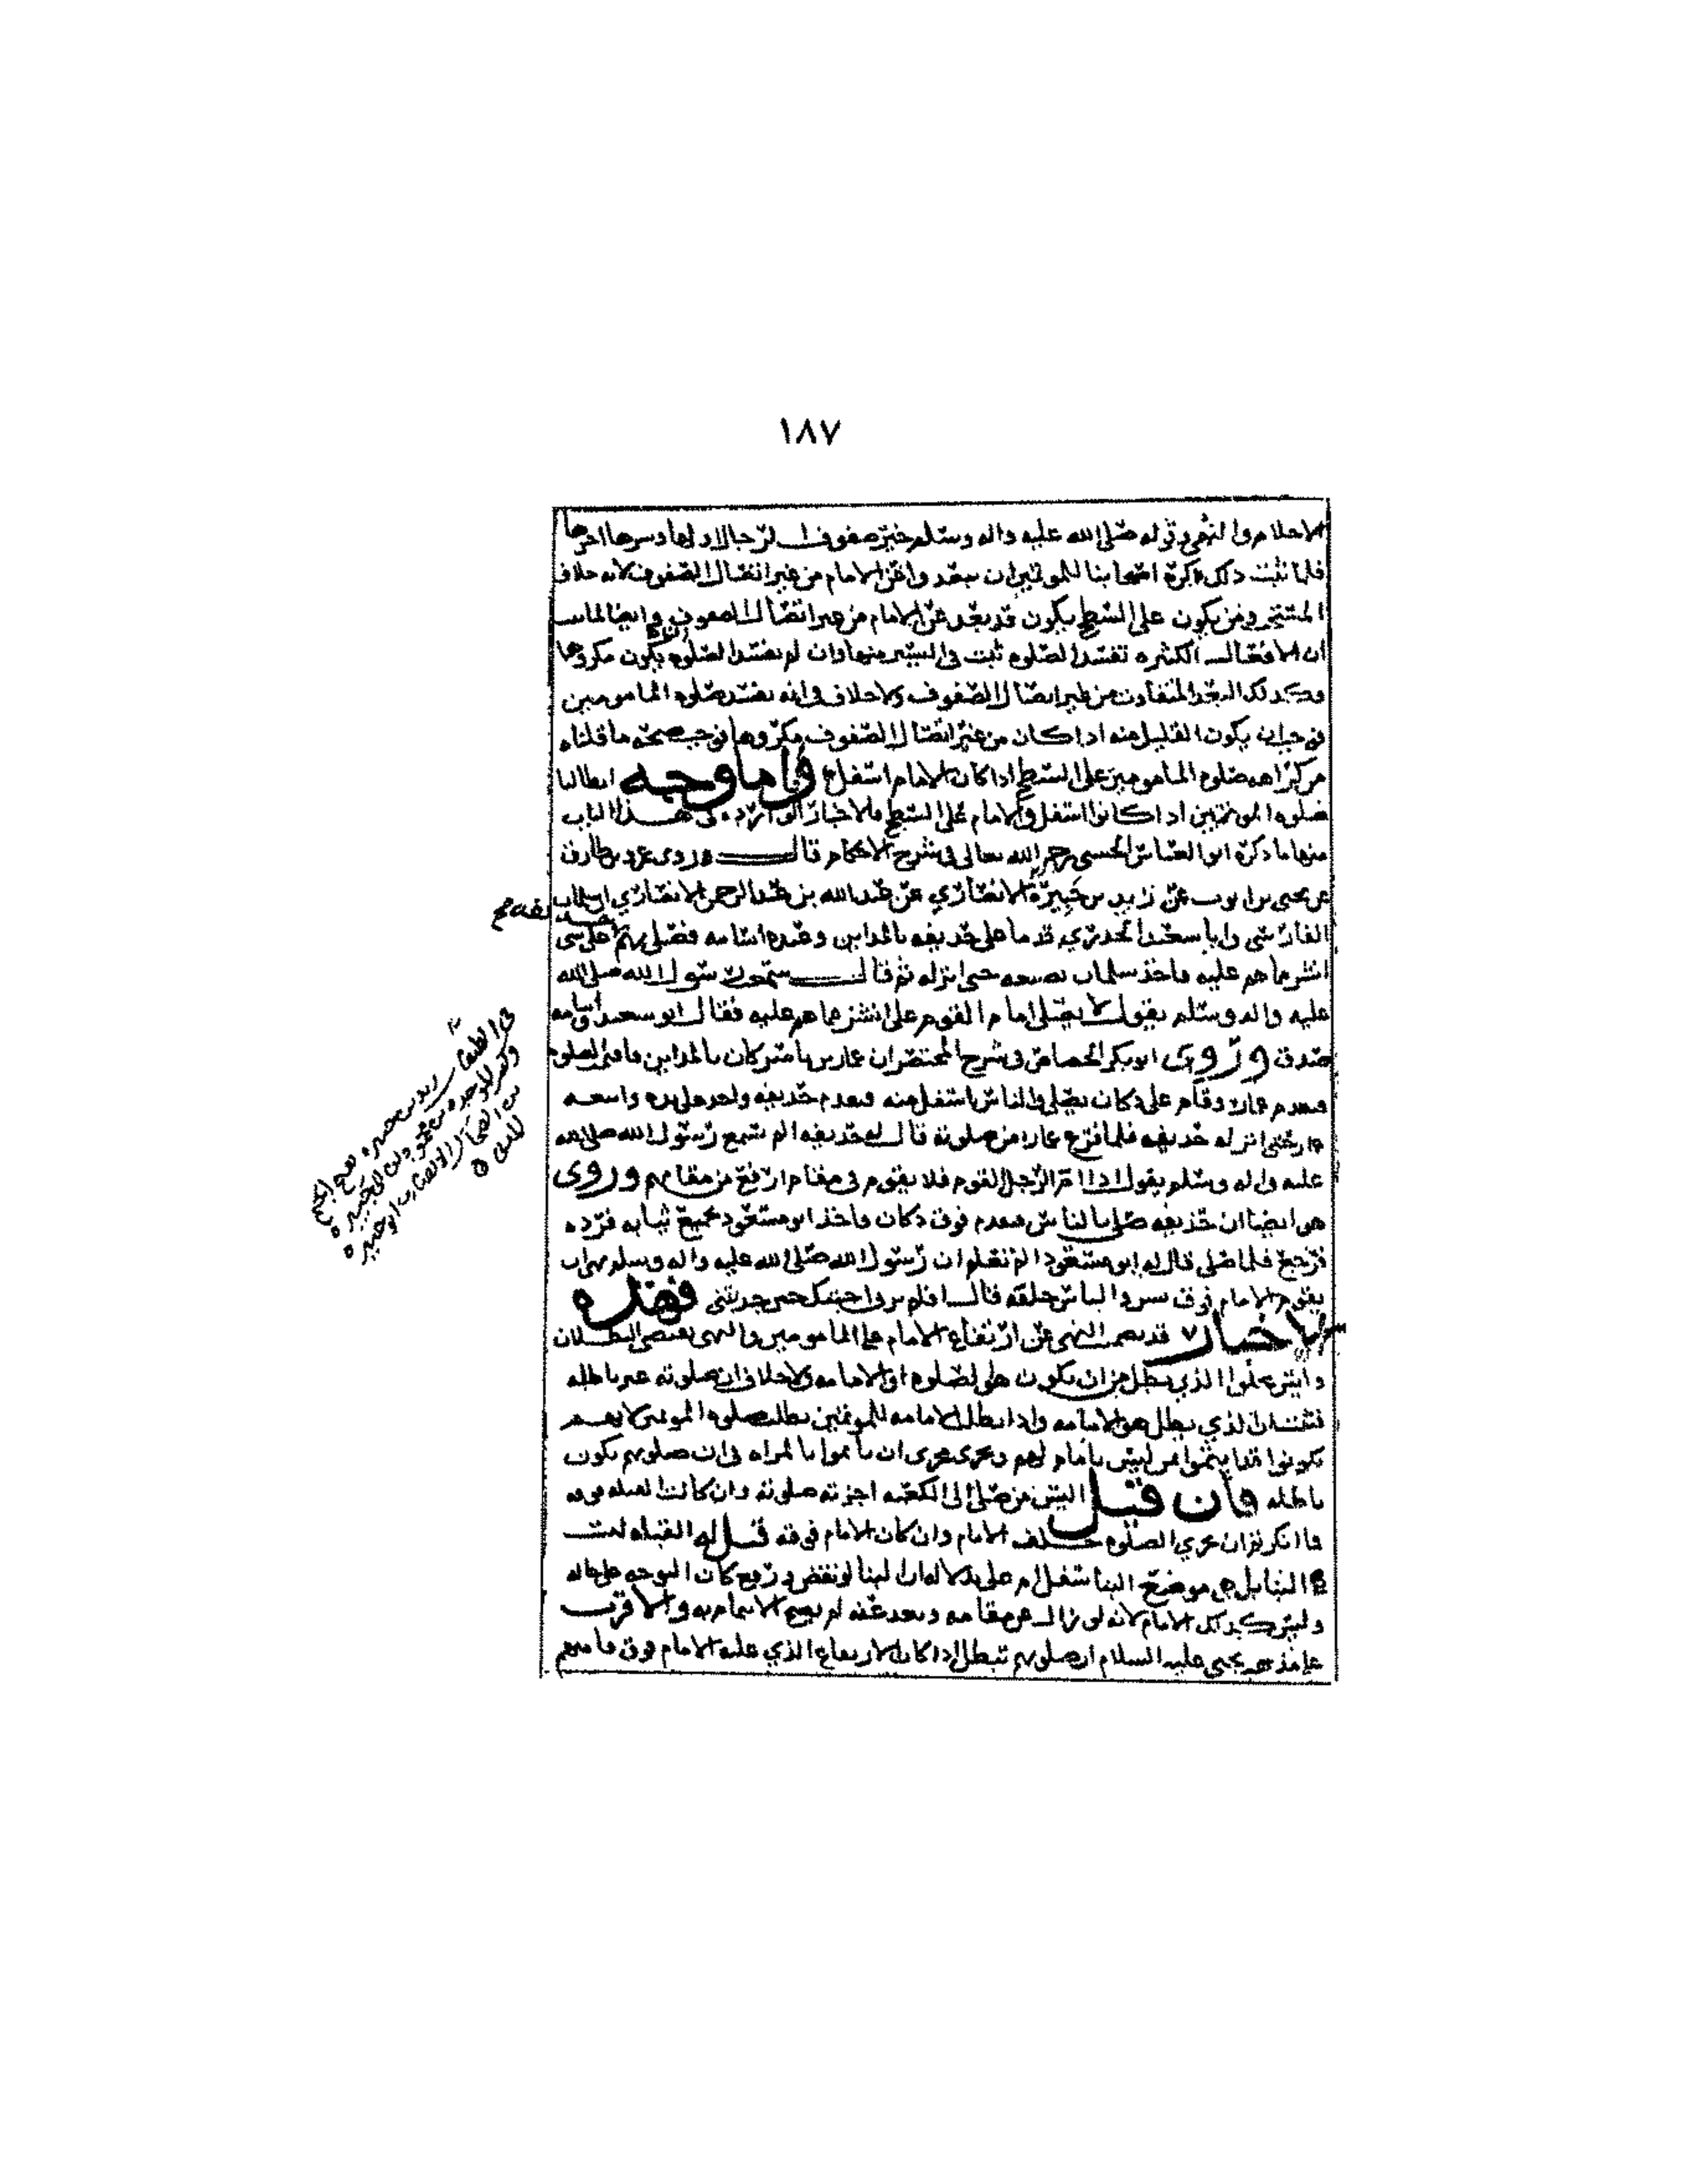 ١٨٧
الاحلام والنهى وقوله صلى الله عليه واله وسلم خير صفوف الرجال اولها وشرها اخرها
فلما ثبت ذلك كره اصحابنا للمؤتمين ان يبعدوا عن الامام من غير اتصال الصفوف لانه خلاف
المستحب ومن يكون على السطح يكون قد بعد عن الامام من غير اتصال الصفوف وايضا لما ثبت
ان الافعال الكثيره تفسد الصلوه ثبت في اليسير منها وان لم يفسد الصلوه يكون مكروها
وكذلك البعد المتفاوت من غير اتصال الصفوف ولا خلاف في انه يفسد صلوه المامومين
فوجب ان يكون القليل منه اذا كان من غير اتصال الصفوف مكروها فوجب صحة ما قلناه
من كراهه صلوه المامومين على السطح اذا كان الامام اسفل واما وجه ابطالنا
صلوه المؤتمين اذا كانوا اسفل والامام على السطح فالاخبار الوارده في هذا الباب
منها ما ذكره ابو العباس الحسني رحمه الله تعالى في شرح الاحكام قال وروى عمرو بن طارق
عن يحيى بن ايوب عن زيد بن جبيرة الانصاري عن عبد الله بن عبد الرحمن الانصاري ان سلمان
الفارسي وابا سعيد الخدري قدما على حذيفه بالمداين وعنده اسامه فصلى بهم على شي
انشز مما هم عليه فاخذ سلمان بضبعه حتى انزله ثم قال سمعت رسول الله صلى الله
عليه واله وسلم يقول لا يصلى امام القوم على انشز مما هم عليه فقال ابو سعيد واسامه
صدق وروى ابو بكر الجصاص في شرح المختصر ان عمار بن ياسر كان بالمداين فاقيمت الصلوه
فتقدم عمار وقام على دكان يصلي والناس اسفل منه فتقدم حذيفه واخذ على يده واتبعه
عمار حتى انزله حذيفه فلما فرغ عمار من صلوته قال له حذيفه الم تسمع رسول الله صلى الله
عليه واله وسلم يقول اذا ام الرجل القوم فلا يقوم في مقام ارفع من مقامهم وروى
هو ايضا ان حذيفه صلى بالناس فتقدم فوق دكان فاخذ ابو مسعود بمجميع ثيابه فرده
فرجع فلما صلى قال له ابو مسعود الم تعلم ان رسول الله صلى الله عليه واله وسلم نهى ان
يقوم الامام فوق والناس خلفه قال افلم ترني اجبتك حين جررتني فهذه
الاخبار قد تضمنت النهي عن ارتفاع الامام على المامومين والنهي يقتضي البطلان
وليس يخلوا الذي يبطل من ان يكون هو الصلوه او الامامه ولا خلاف ان صلوته غير باطله
فثبت ان الذي يبطل هو الامامه واذا بطل الامامه للمؤتمين بطلت صلوه المؤتمين لانهم
يكونوا قد ايتموا بمن ليس بامام لهم وجرى مجرى ان ياتموا بالمراه في ان صلوتهم يكون
باطله فان قيل اليس من صلى الى الكعبه اجزته صلوته وان كانت القبله فوقه
فما انكرتم ان تجزي الصلوه خلف الامام وان كان الامام فوقه قيل له القبله ليست
البنا بل هي موضع البنا
وليس كذلك الامام لانه لو زال عن مقامه وبعد عنه لم يصح الايتمام به والاقرب
على مذهب يحيى عليه السلام ان صلوتهم تبطل اذا كان الارتفاع الذي عليه الامام فوق قامتهم